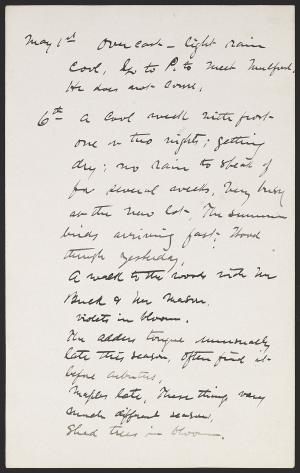 May 1st Overcast - light rain
Cool, Go to P. to meet Mulford.
He does not come.
6th A cool week with frost
one or two nights; getting
dry; no rain to speak of
for several weeks, Very busy
on the new lot, The summer
birds arriving fast; Wood
thrush yesterday,
A walk to the woods with Mr
Buck & Mr Mason,
violets in bloom.
The adders tongue unusually
late this season, Often find it
before arbutus,
Maples late, These things vary
much different season,
Shad trees in bloom.